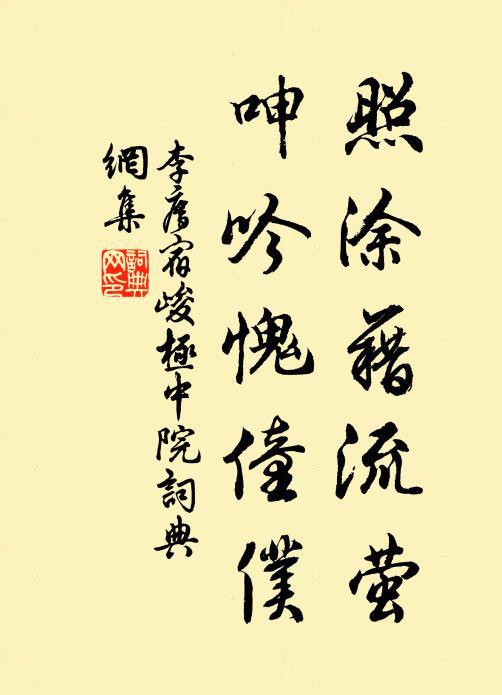 照涂藉流萤
呻吟愧僮僕
李廌宿峻極中院詞典
網集
詞典
网印